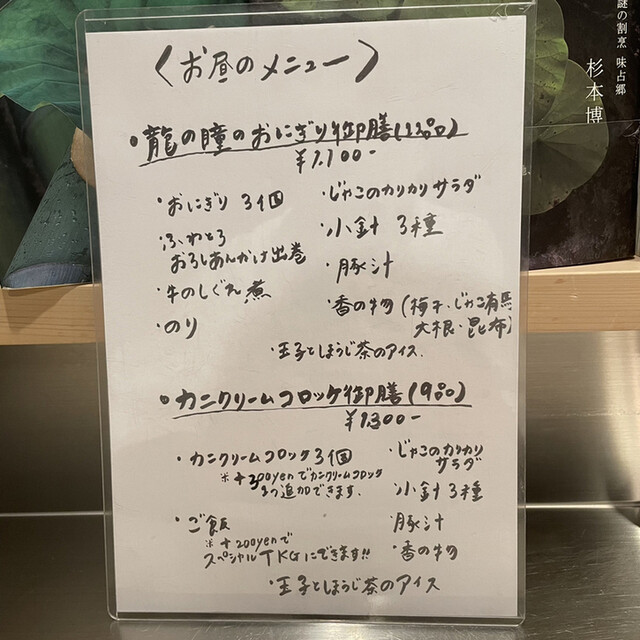 謎の割烹 味占郷
杉本博
〈お昼のメニュー〉
・龍の瞳のおにぎり御膳(12品)
¥1,700-
・おにぎり 3個
・ふわとろ
おろしあんかけ出巻
・牛のしぐれ煮
・のり
・じゃこのカリカリサラダ
・小針 3種
・豚汁
・香の物(梅干・じゃこ有馬
大根・昆布)
・玉子とほうじ茶のアイス
・カニクリームコロッケ御膳(9品)
¥1,300-
・カニクリームコロッケ3個
※+300yenでカニクリームコロッケ
1つ追加できます.
・ご飯
※+200yenで
スペシャルTKGにできます!!
・じゃこのカリカリ
サラダ
・小針 3種
・豚汁
・香の物
・玉子とほうじ茶のアイス